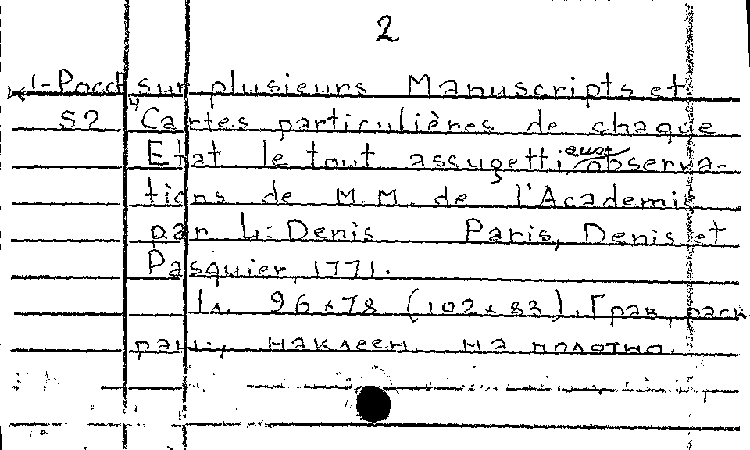 2
1-Росс sur plusieurs Manuscripts et
52 Cartes particulières de chaque
Etat le tout assugetti aux observa-
tions de M.M. de l'Academie
par L. Denis Paris, Denis et
Pasquier, 1771.
1л. 96x78 (102x83). Грав, раск
раш., наклеен. на полотно.